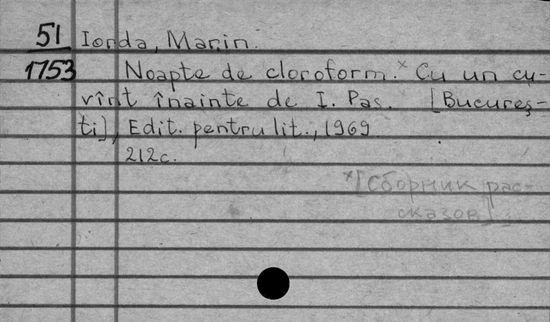 51 Iorda, Marin.
1753 Noapte de cloroform.* Cu un cu-
vînt înainte de I. Pas. [Bucureș-
ti], Edit. pentru lit., 1969
212c.
*[Сборник рас-
сказов].